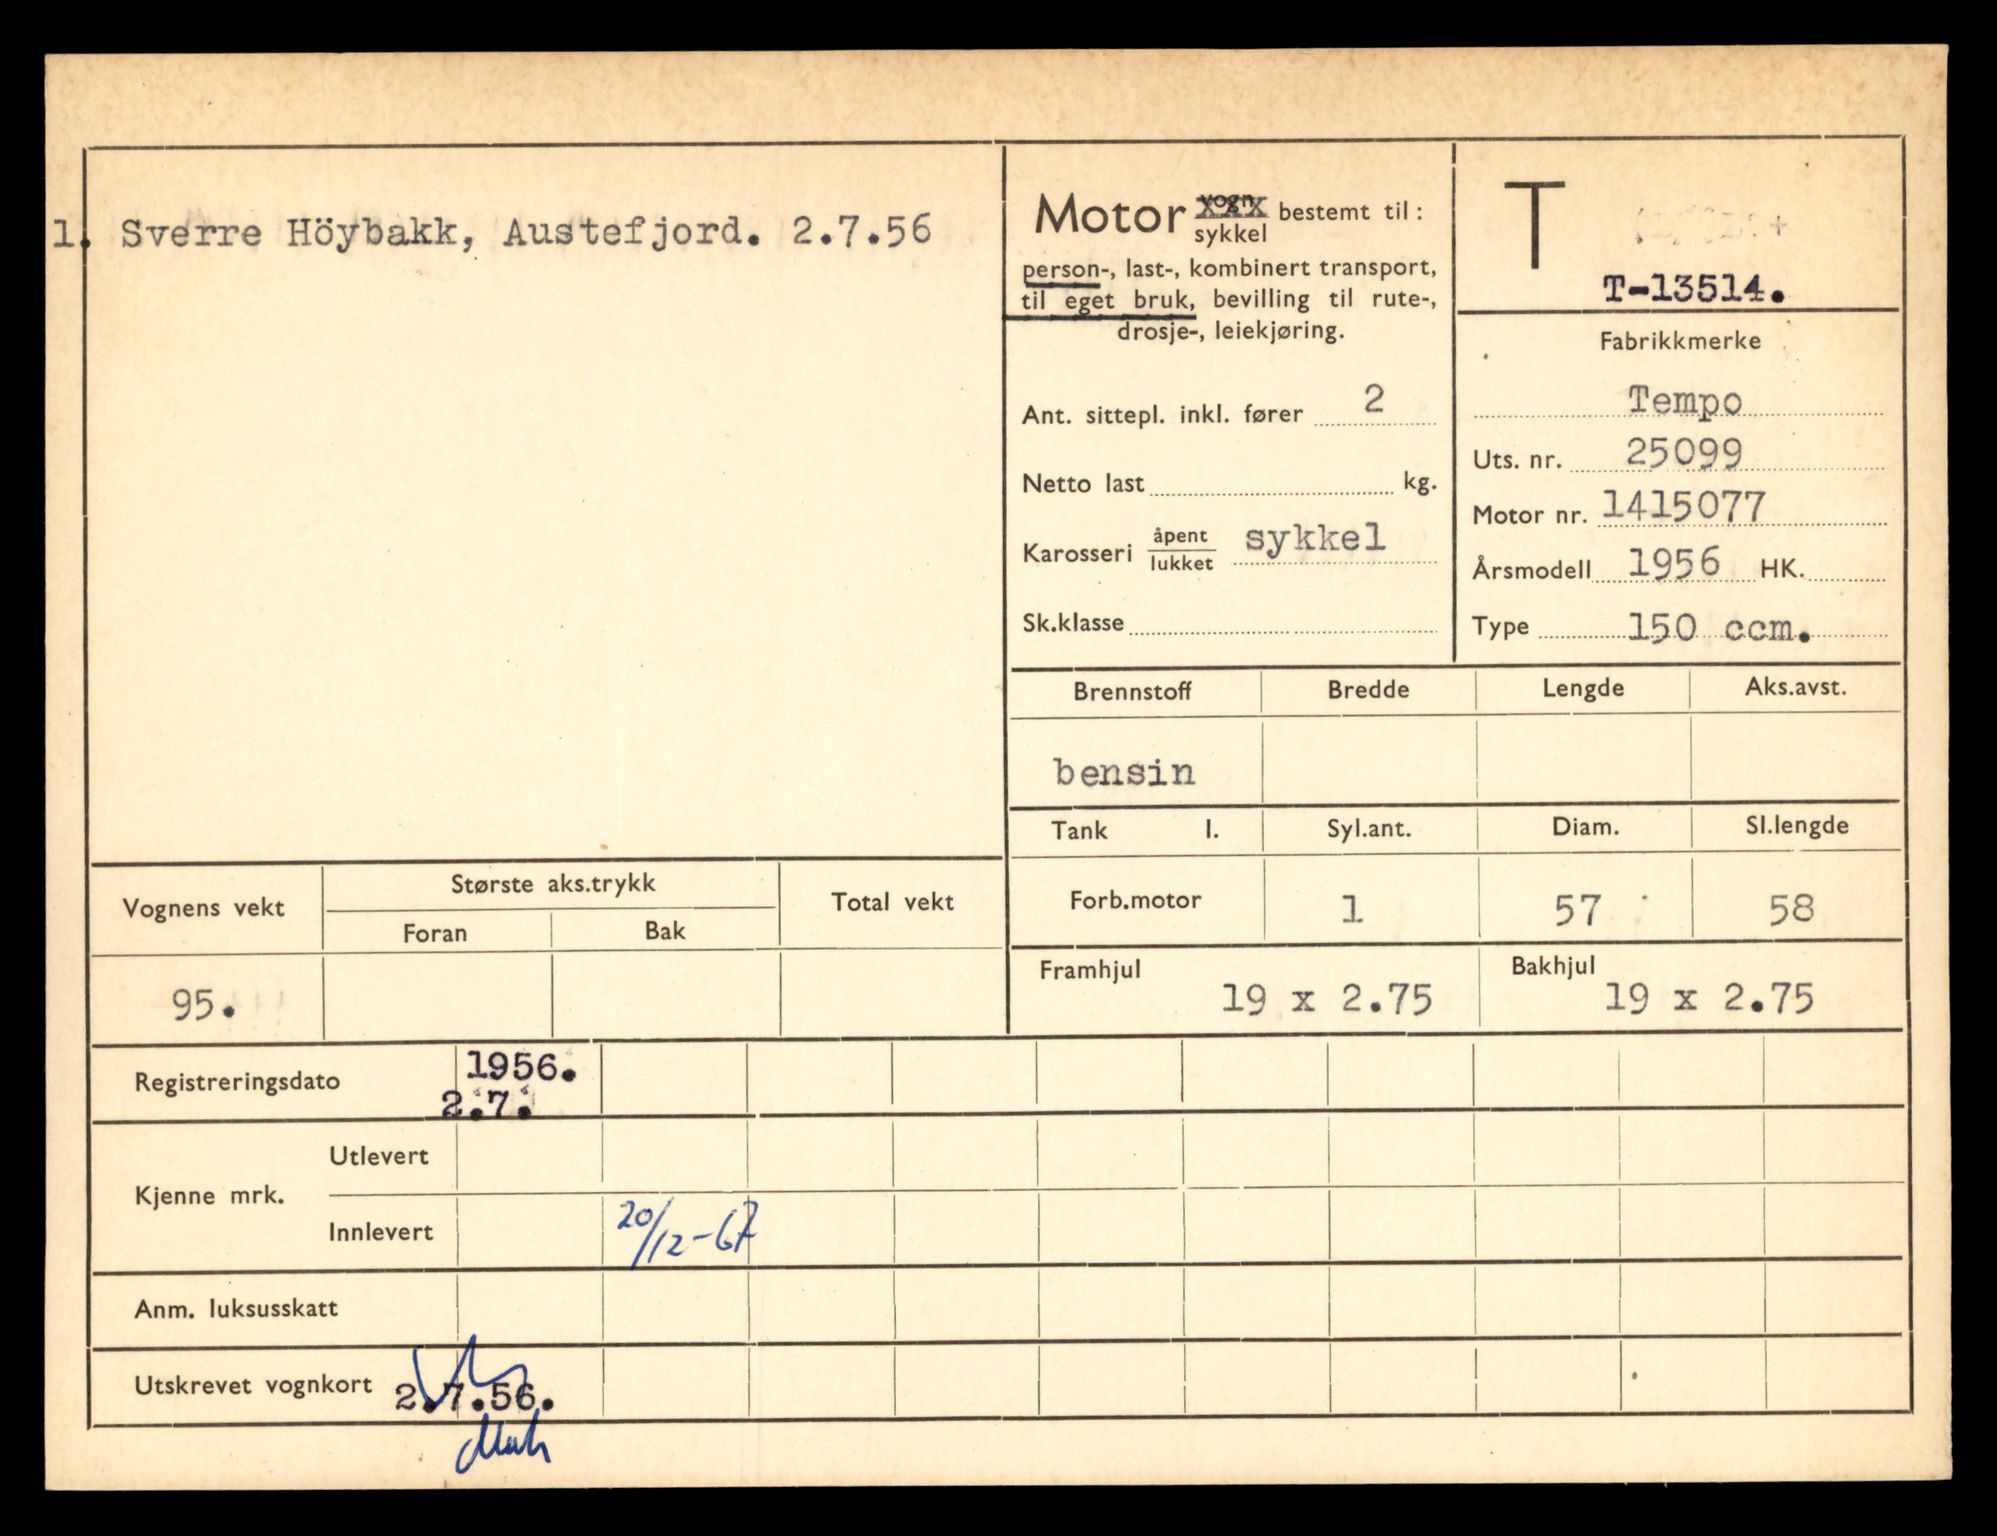 1. Sverre Höybakk, Austefjord. 2.7.56
Motor vogn sykkel bestemt til:
person-, last-, kombinert transport,
til eget bruk, bevilling til rute-,
drosje-, leiekjøring.
Ant. sittepl. inkl. fører 2
Netto last kg.
Karosseri åpent lukket sykkel
Sk.klasse
T
T-13514.
Fabrikkmerke
Tempo
Uts. nr. 25099
Motor nr. 1415077
Årsmodell 1956 HK.
Type 150 ccm.
Brennstoff Bredde Lengde Aks.avst.
bensin
Tank l. Syl.ant. Diam. Sl.lengde
Forb.motor 1 57 58
Framhjul 19 x 2.75 Bakhjul 19 x 2.75
Vognens vekt Største aks.trykk Total vekt
Foran Bak
95.
Registreringsdato 1956.
2.7.
Kjenne mrk. Utlevert
Innlevert 20/12-67
Anm. luksusskatt
Utskrevet vognkort 2.7.56.